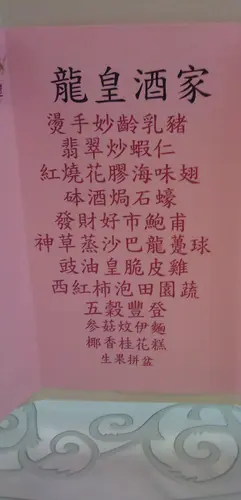 龍皇酒家
燙手妙齡乳豬
翡翠炒蝦仁
紅燒花膠海味翅
砵酒焗石蠔
發財好市鮑甫
神草蒸沙巴龍躉球
豉油皇脆皮雞
西紅柿泡田園蔬
五穀豐登
參菇炆伊麵
椰香桂花糕
生果拼盆